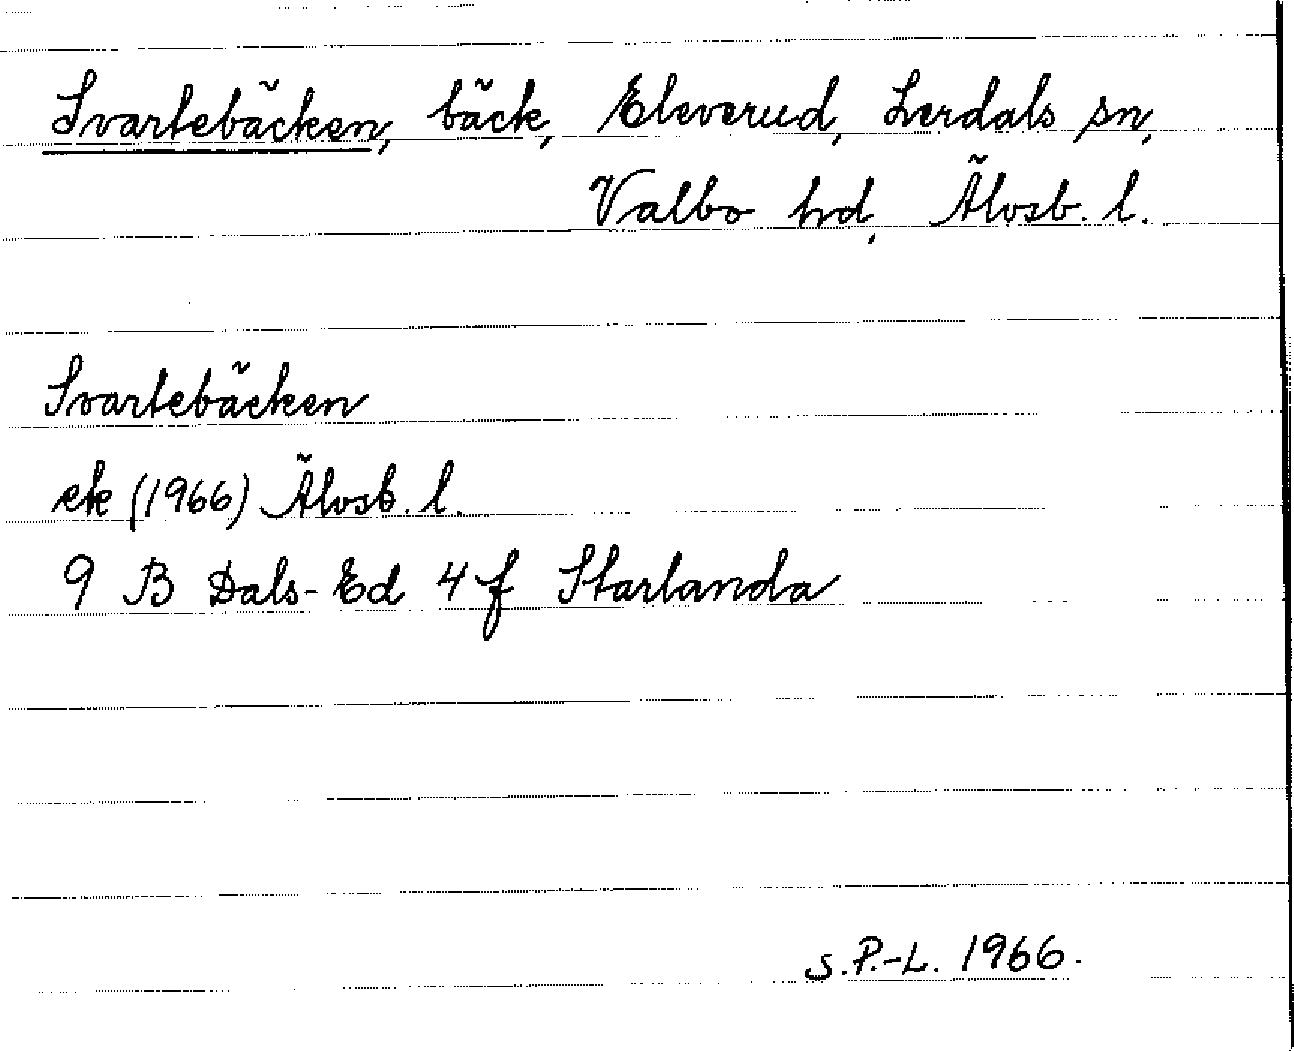 Svartebäcken, bäck, Eleverud, Lerdals sn,
Valbo hd, Älvsb. l.
Svartebäcken
ek (1966) Älvsb. l.
9 B Dals-Ed 4 f Starlanda
S.P.-L. 1966.